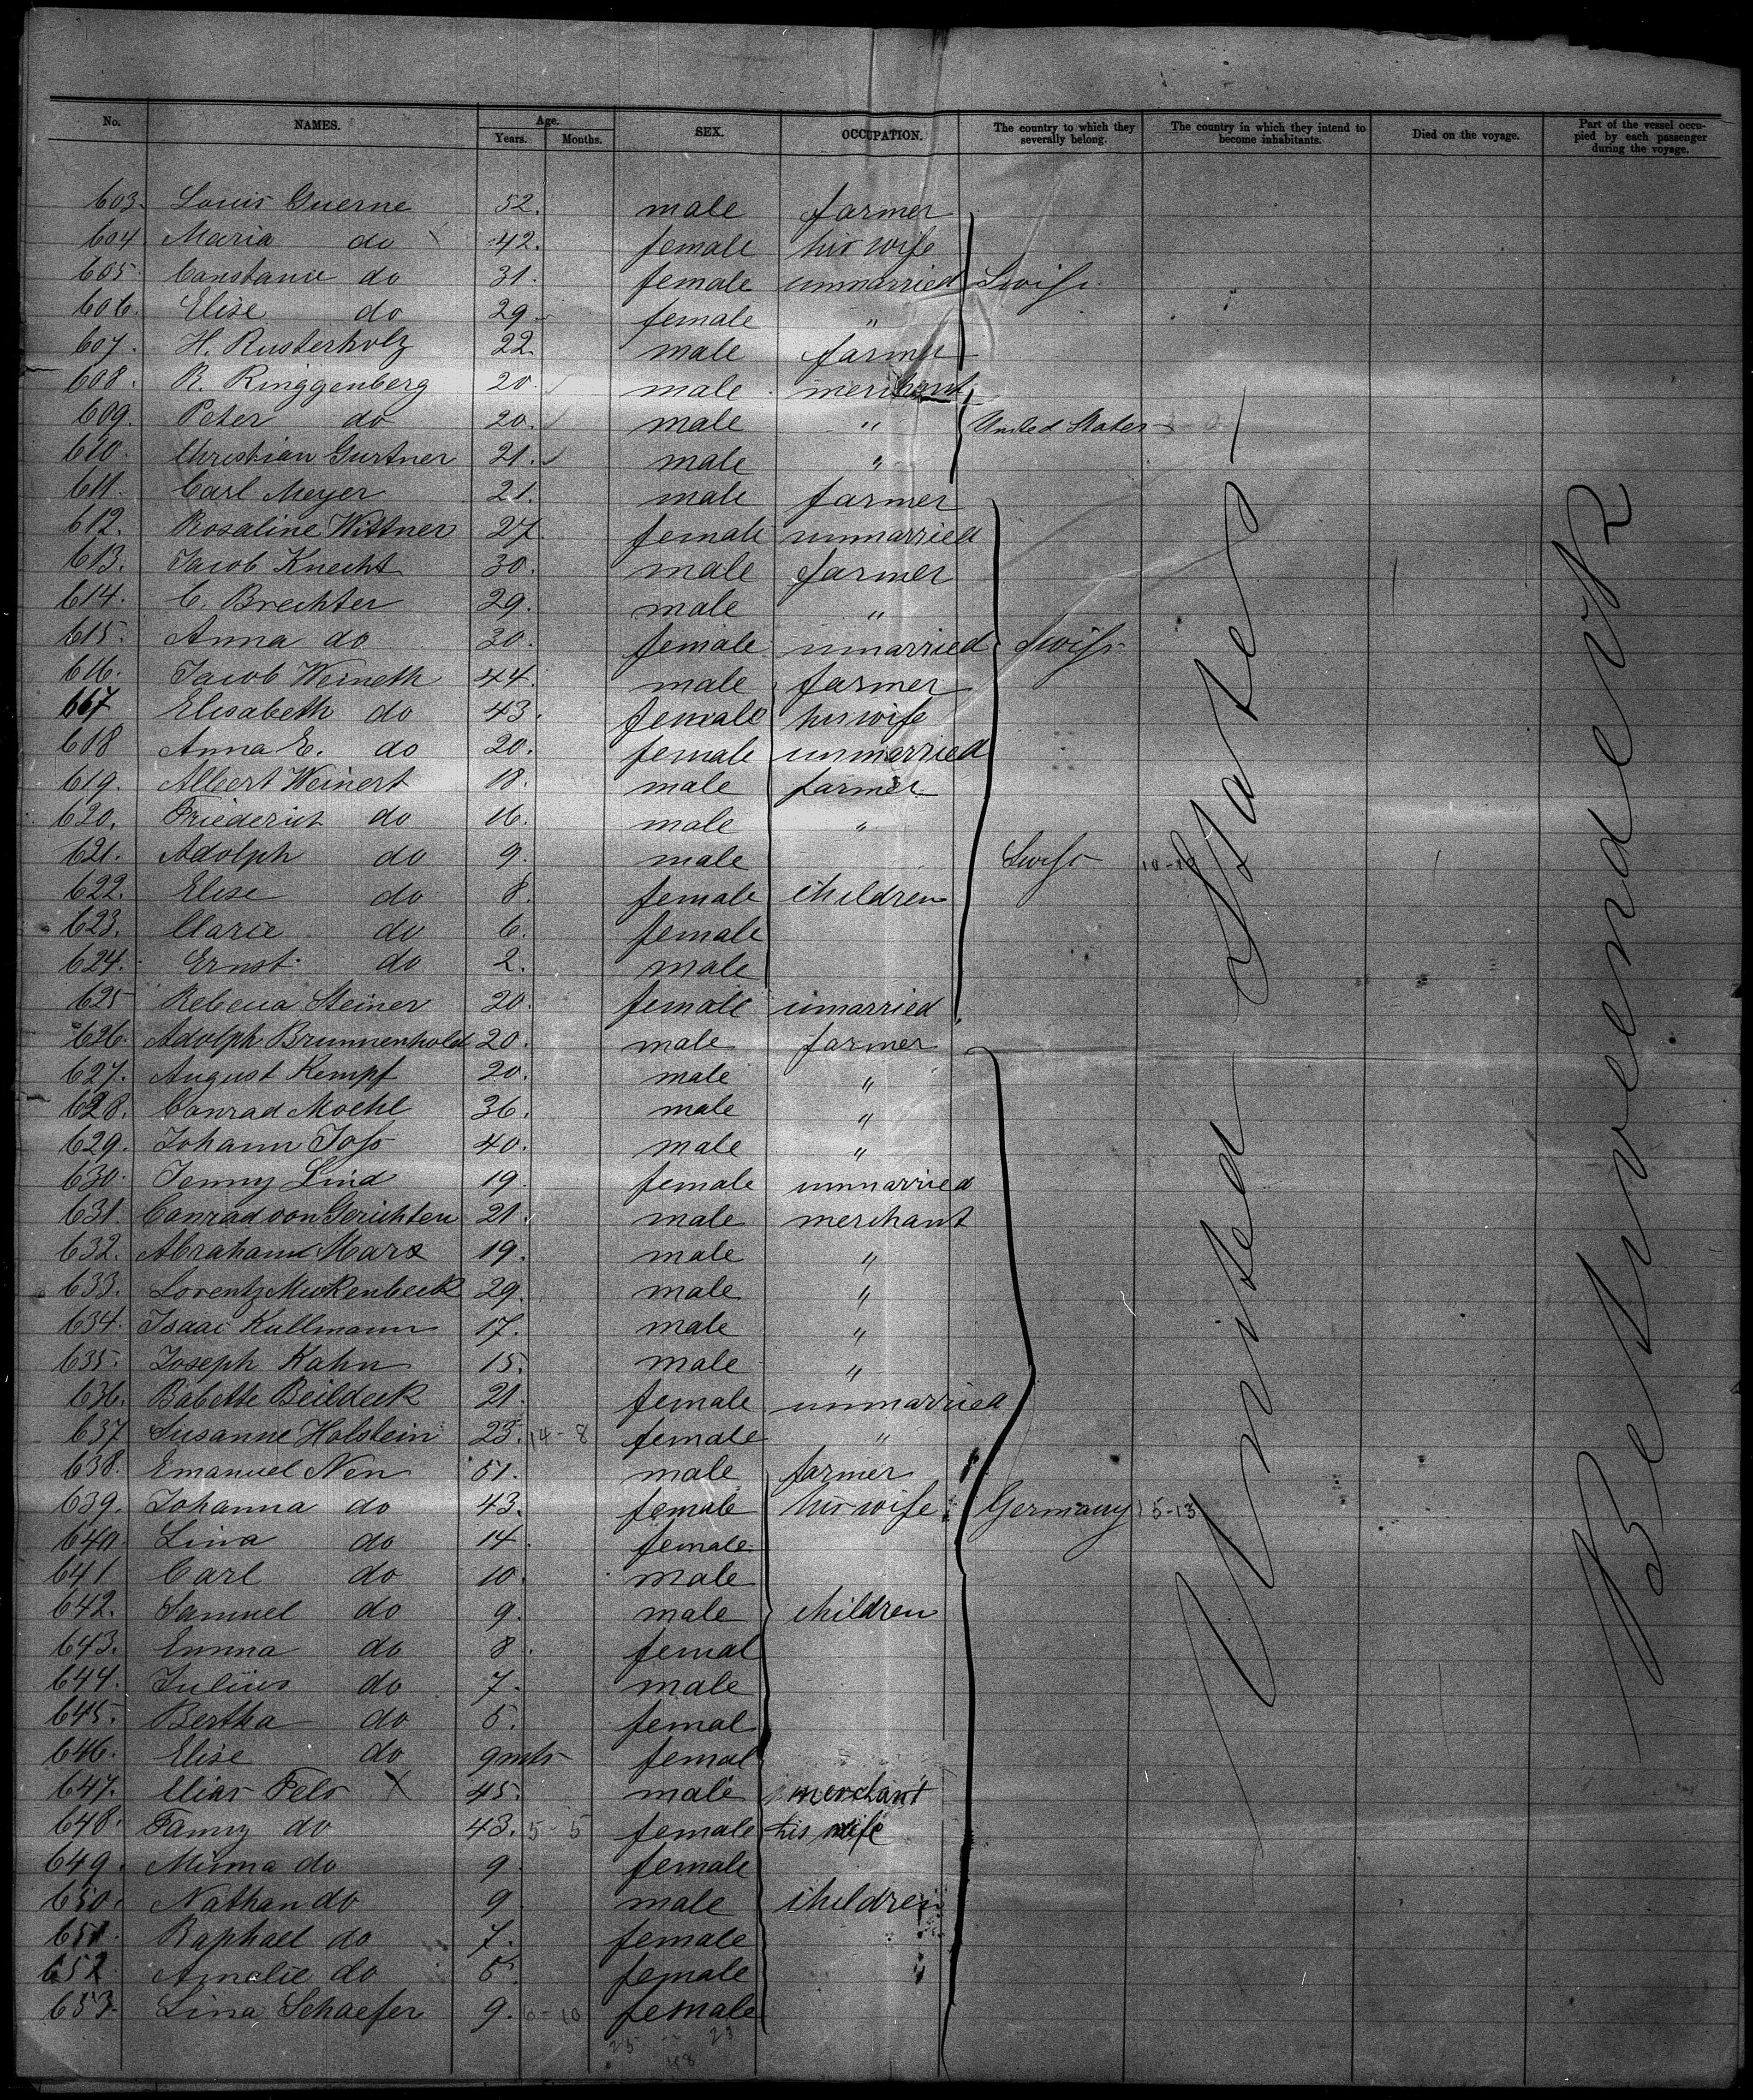 No. NAMES. Age. Years. Months. SEX. OCCUPATION. The country to which they severally belong. The country in which they intend to become inhabitants. Died on the voyage. Part of the vessel occupied by each passenger during the voyage.
603. Louis Guerne 52. male farmer
604 Maria do 42. female his wife
605 Constance do 31. female unmarried Swiss
606. Elise do 29. female "
607. H. Rusterholz 22 male farmer
608. R. Ringgenberg 20. male merchant
609. Peter do 20. male " United States
610. Christian Gurtner 21. male "
611. Carl Meyer 21. male farmer
612. Rosaline Wittner 27. female unmarried
613. Jacob Knecht 30. male farmer
614. C. Brechter 29. male "
615. Anna do 30. female unmarried Swiss
616. Jacob Weineth 44. male farmer
617 Elisabeth do 43. female his wife
618 Anna E. do 20. female unmarried
619. Albert Weinert 18. male farmer
620. Friederich do 16. male "
621. Adolph do 9. male Swiss 10-10
622. Elise do 8. female children
623. Marie do 6. female
624. Ernst do 2. male
625 Rebecca Steiner 20. female unmarried
626. Adolph Brunnenhold 20. male farmer
627. August Kempf 20. male "
628. Conrad Moehl 36. male "
629. Johann Joss 40. male "
630. Jenny Lind 19. female unmarried
631. Conrad von Gerichten 21. male merchant
632. Abraham Marx 19. male "
633. Lorentz Muckenbeck 29. male "
634. Isaac Kullmann 17. male "
635. Joseph Kahn 15. male "
636. Babette Beildeck 21. female unmarried
637 Susanne Holstein 23. 14-8 female "
638. Emanuel Neu 51. male farmer
639. Johanna do 43. female his wife Germany 15-13
640 Lina do 14. female
641 Carl do 10. male
642. Samuel do 9. male children
643. Emma do 8. femal
644. Julius do 7. male
645. Bertha do 5. femal
646. Elise do 9 mts femal
647. Elias Fels X 45. male merchant
648. Fanny do 43. 5-5 female his wife
649. Minna do 9 female
650. Nathan do 9 male children
651. Raphael do 7. female
652 Amalie do 5. female
653. Lina Schaefer 9. 6-10 female
25 23
48
United States
Betweendeck